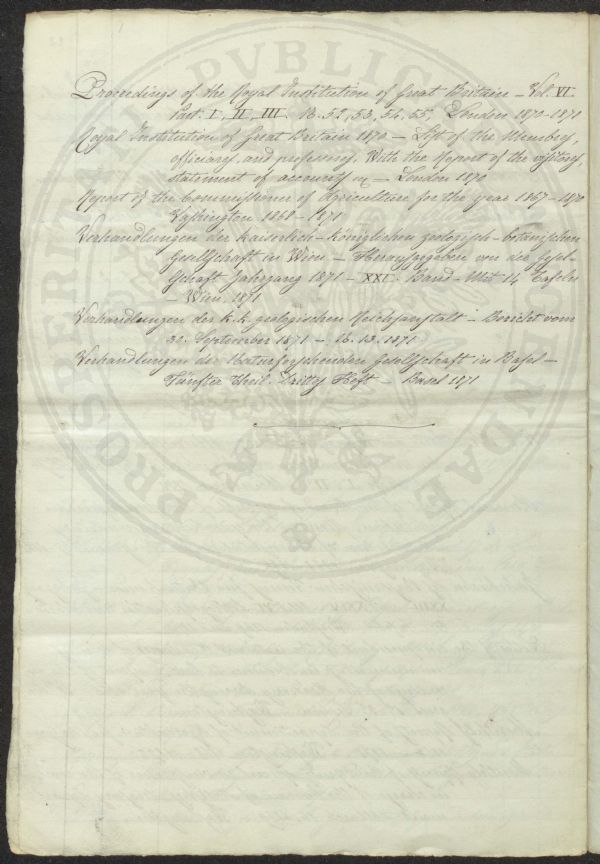 Proceedings of the Royal Institution of Great Britain – Vol. VI.
Part. I, II, III. N. 52, 53, 54, 55, London 1870–1871
Royal Institution of Great Britain 1870 – List of the Members,
officiers, and professors, With the Report of the visitors,
statement of accounts – London 1870
Report of the Commissioner of Agriculture for the year 1867–1870
1868–1871
Verhandlungen der kaiserlich-königlichen zoologisch-botanischen
Gesellschaft in Wien – Herausgegeben von der Gesel-
lschaft Jahrgang 1871 – XXI. Band – Mit 14 Tafeln
– Wien. 1871
Verhandlungen der k. k. geologischen Reichsanstalt – Bericht vom
30. September 1871 – N. 13. 1871
Verhandlungen der Naturforschenden Gesellschaft in Basel –
Fünfter Theil. Drittes Heft – Basel 1871
PROSPERITATI PVBLICAE AVGENDAE